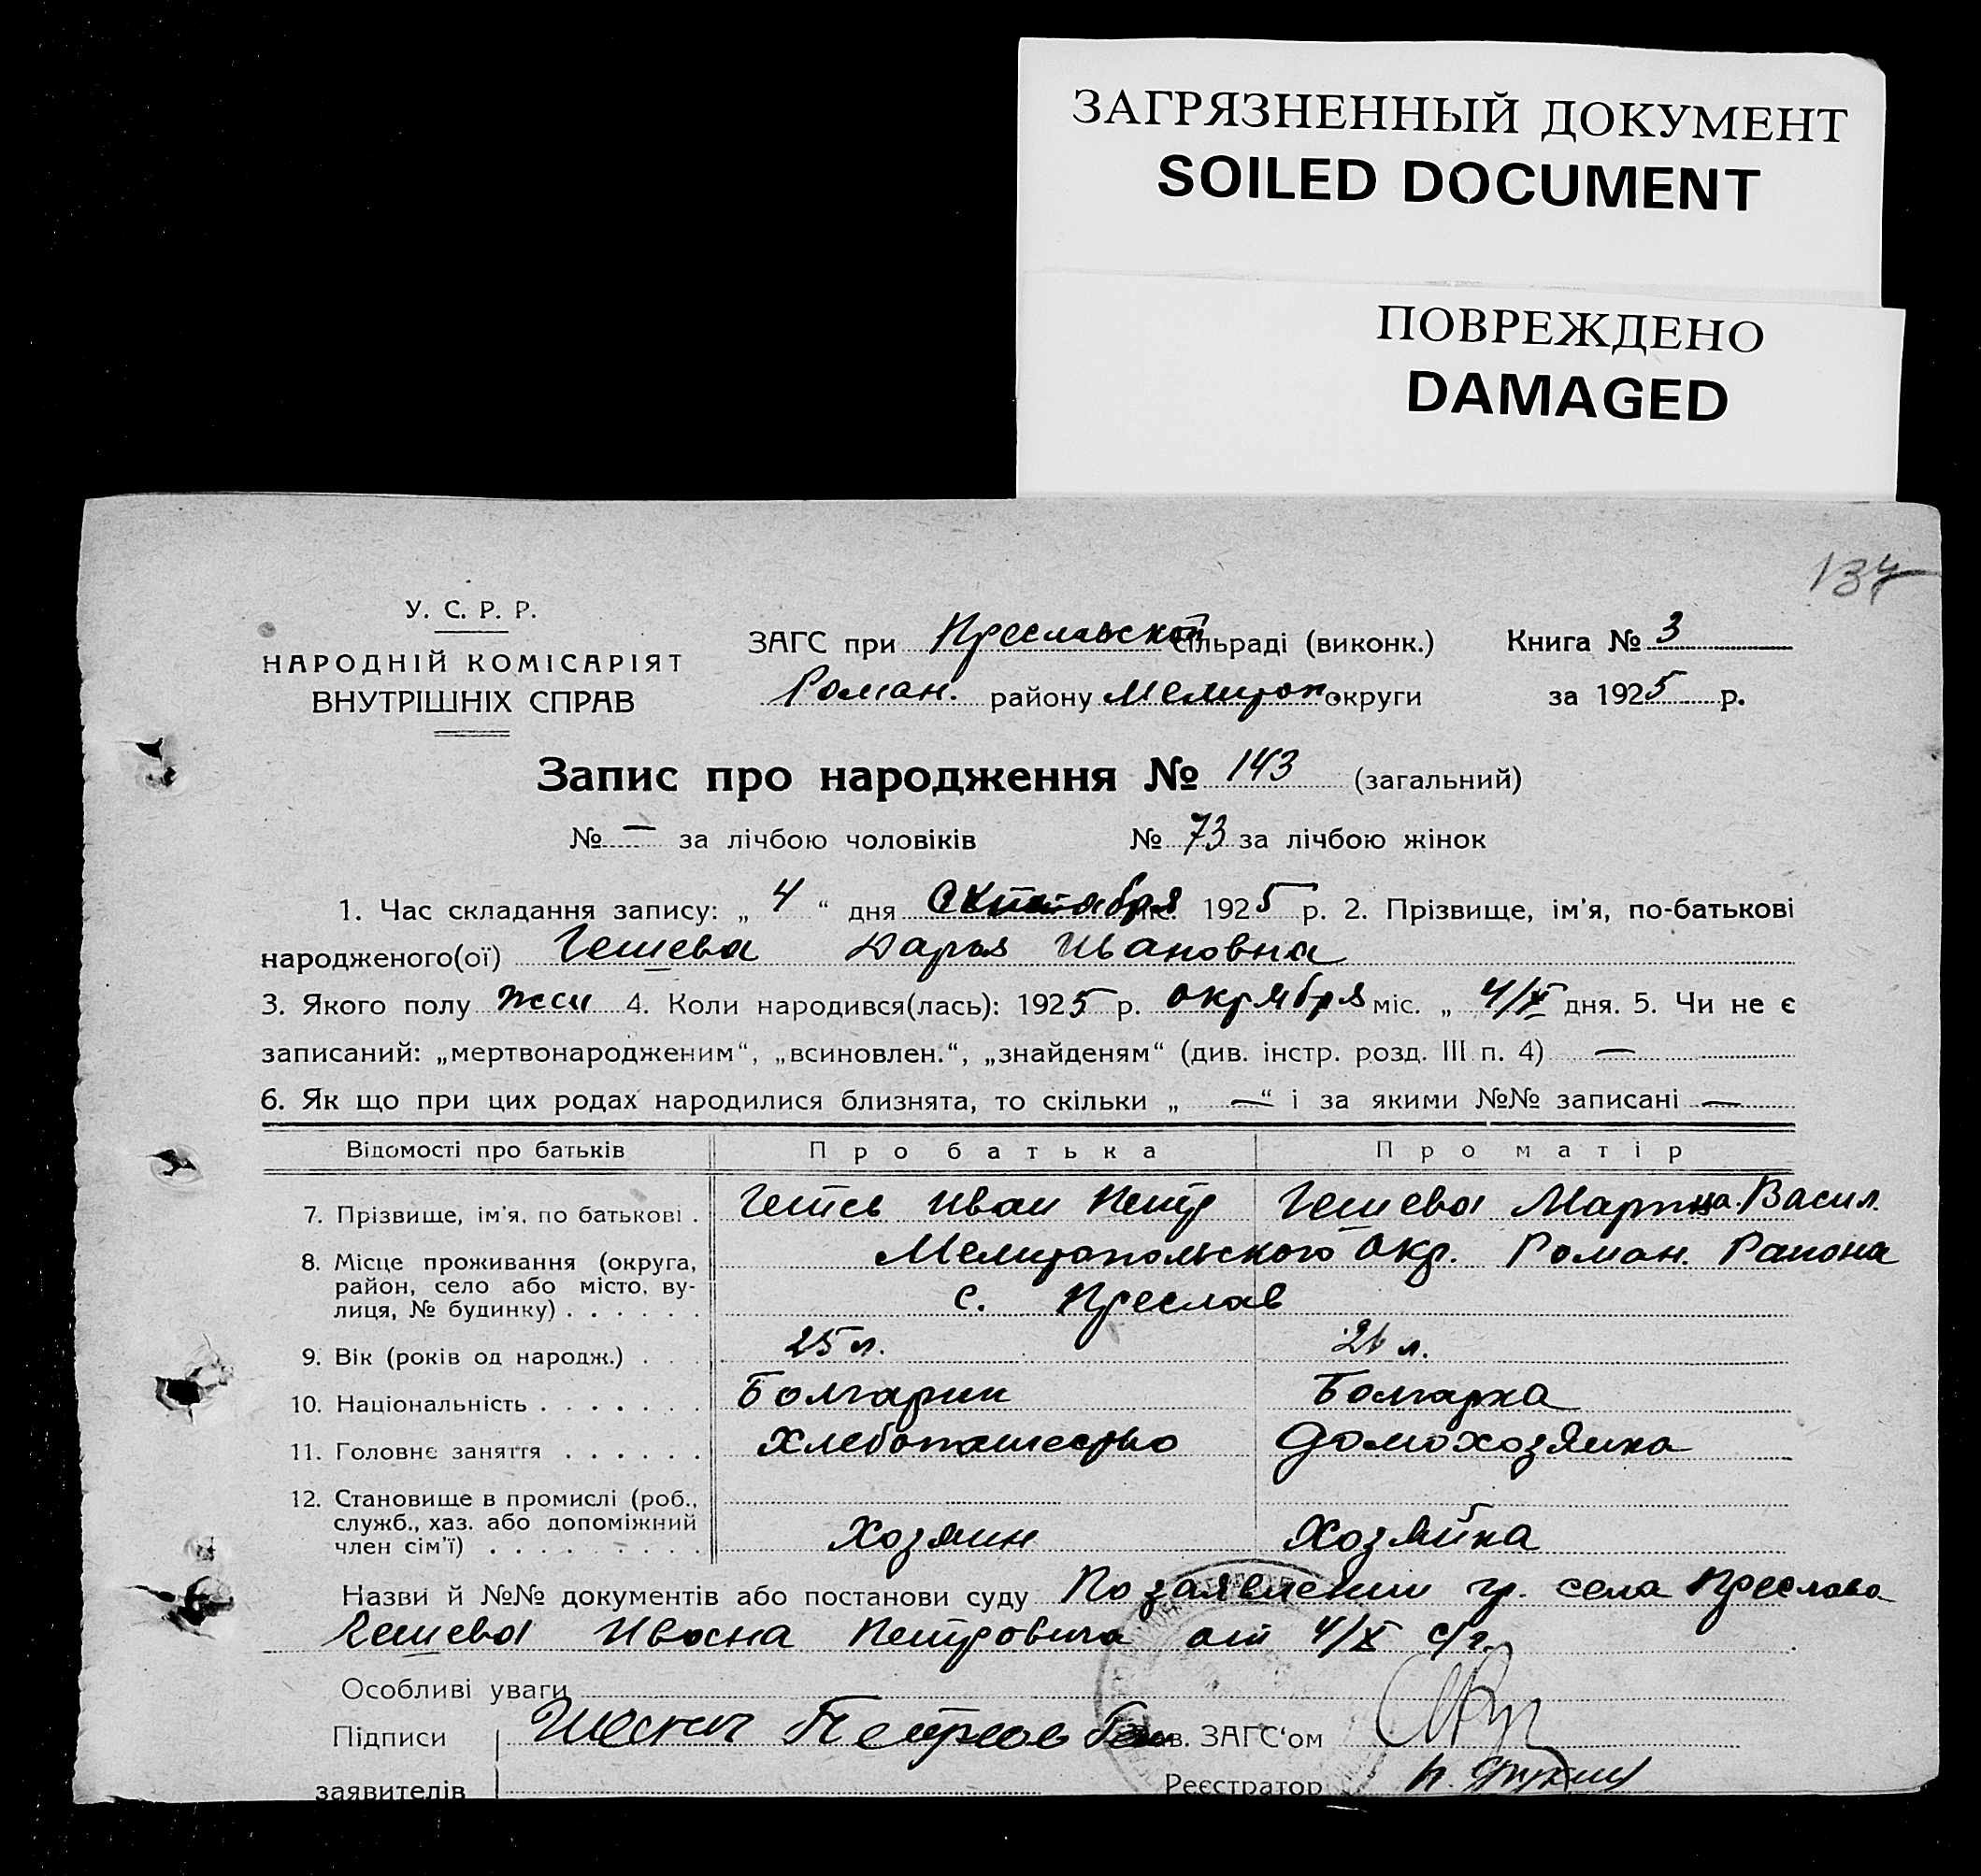 ЗАГРЯЗНЕННЫЙ ДОКУМЕНТ
SOILED DOCUMENT
ПОВРЕЖДЕНО
DAMAGED
134
У. С. Р. Р.
НАРОДНІЙ КОМІСАРІЯТ
ВНУТРІШНІХ СПРАВ
ЗАГС при Преславской сільраді (виконк.) Книга № 3
Роман. району Мелитоп. округи за 1925 р.
Запис про народження № 143 (загальний)
№ — за лічбою чоловіків № 73 за лічбою жінок
1. Час складання запису: „ 4 “ дня Октября міс. 1925 р. 2. Прізвище, ім'я, по-батькові
народженого(ої) Гешева Дарья Ивановна
3. Якого полу жен 4. Коли народився(лась): 1925 р. октября міс. „ 4/X дня. 5. Чи не є
записаний: „мертвонародженим“, „всиновлен.“, „знайденям“ (див. інстр. розд. III п. 4) —
6. Як що при цих родах народилися близнята, то скільки „ —“ і за якими №№ записані —
Відомості про батьків Про батька Про матір
7. Прізвище, ім'я, по батькові . Гешев Иван Петр Гешева Марица Васил.
8. Місце проживання (округа, Мелитопольского Окр. Роман. Района
район, село або місто, ву-
лиця, № будинку) . . . . . . с. Преслав
9. Вік (років од народж.) . . . 25 л. 26 л.
10. Національність . . . . . . . Болгарин Болгарка
11. Головне заняття . . . . . . Хлебопашество Домохозяйка
12. Становище в промислі (роб.,
служб., хаз. або допоміжний
член сім'ї) . . . . . . . . . Хозяин Хозяйка
Назви й №№ документів або постанови суду По заявлении гр. села Преслава
Гешева Ивана Петровича от 4/X с/г.
Особливі уваги
Підписи Петров Зав. ЗАГС'ом
заявителів Реєстратор